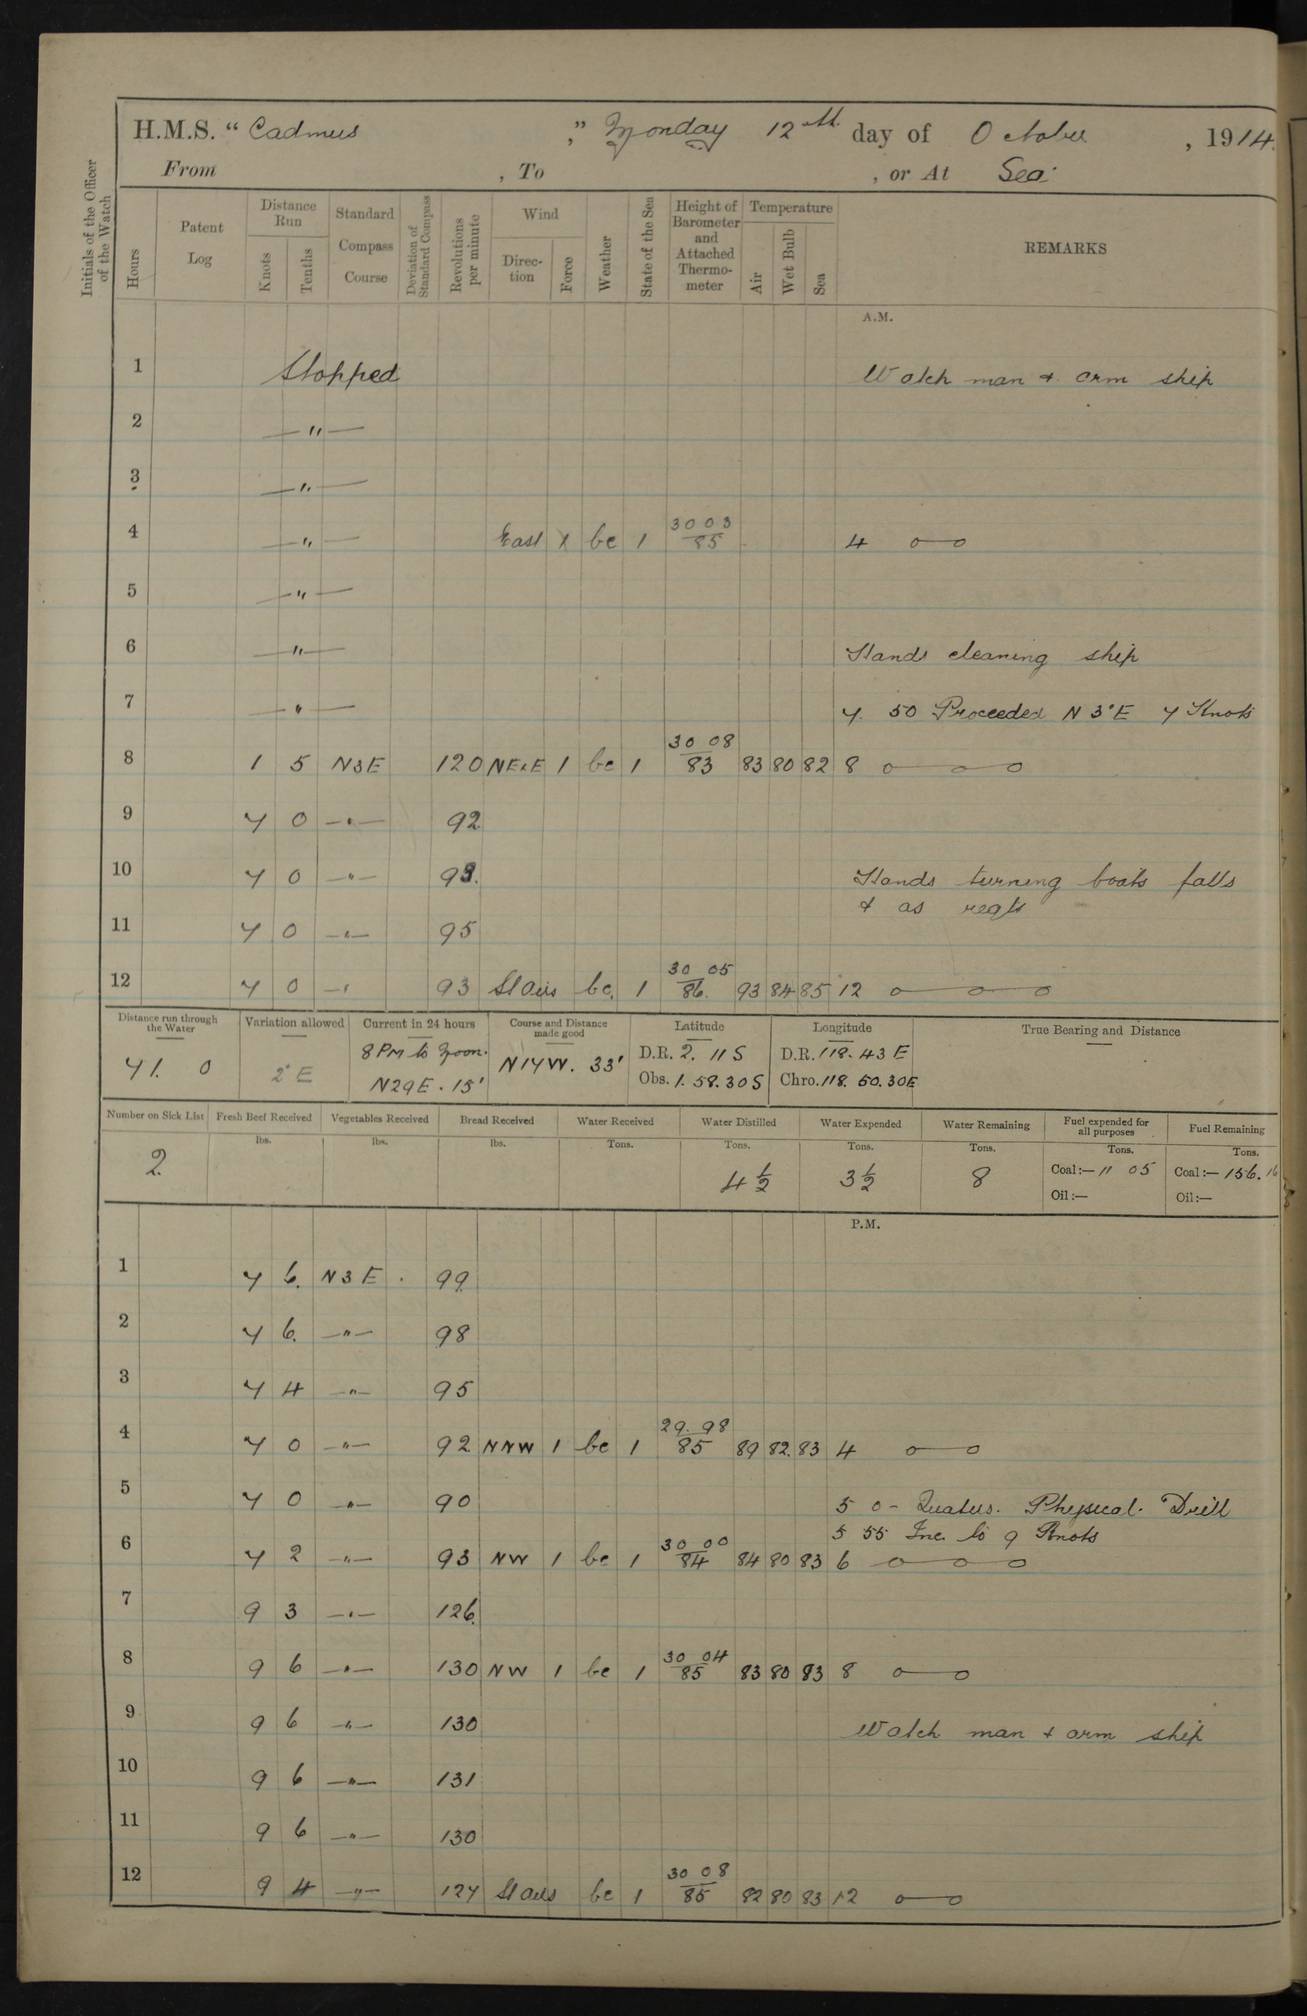 H.M.S. “ Cadmus ,” Monday 12th day of October , 1914.
From , To , or At Sea.
Initials of the Officer of the Watch
Hours
Patent Log
Distance Run
Knots
Tenths
Standard Compass Course
Deviation of Standard Compass
Revolutions per minute
Wind
Direction
Force
Weather
State of the Sea
Height of Barometer and Attached Thermometer
Temperature
Air
Wet Bulb
Sea
REMARKS
A.M.
1 Stopped Watch man & arm ship
2 —"—
3 —"—
4 —"— East 1 bc 1 30 03 / 85 4 o—o
5 —"—
6 —"— Hands cleaning ship
7 —"— 7. 50 Proceeded N 3°E 7 Knots
8 1 5 N3E 120 NExE 1 bc 1 30 08 / 83 83 80 82 8 o—o—o
9 7 0 —"— 92
10 7 0 —"— 93. Hands turning boats falls
& as reqts
11 7 0 —"— 95
12 7 0 —" 93 Slairs bc. 1 30 05 / 86. 93 84 85 12 o—o—o
Distance run through the Water
71. 0
Variation allowed
2°E
Current in 24 hours
8PM to Noon.
N29E. 15'
Course and Distance made good
N17W. 33'
Latitude
D.R. 2. 11 S
Obs. 1. 58. 30 S
Longitude
D.R. 118. 43 E
Chro. 118. 50. 30E
True Bearing and Distance
Number on Sick List
2
Fresh Beef Received
lbs.
Vegetables Received
lbs.
Bread Received
lbs.
Water Received
Tons.
Water Distilled
Tons.
4 ½
Water Expended
Tons.
3 ½
Water Remaining
Tons.
8
Fuel expended for all purposes
Tons.
Coal:— 11 05
Oil:—
Fuel Remaining
Tons.
Coal:— 156. 16
Oil:—
P.M.
1 7 6. N3E . 99
2 7 6. —"— 98
3 7 4 —"— 95
4 7 0 —"— 92 NNW 1 bc 1 29. 98 / 85 89 82. 83 4 o—o
5 7 0 —"— 90 5 0 - Quarters. Physical. Drill
5 55 Inc. to 9 Knots
6 7 2 —"— 93 NW 1 bc 1 30 00 / 84 84 80 83 6 o—o—o
7 9 3 —"— 126.
8 9 6 —"— 130 NW 1 bc 1 30 04 / 85 83 80 83 8 o—o
9 9 6 —"— 130 Watch man & arm ship
10 9 6 —"— 131
11 9 6 —"— 130
12 9 4 —"— 127 Slairs bc 1 30 08 / 85 82 80 83 12 o—o